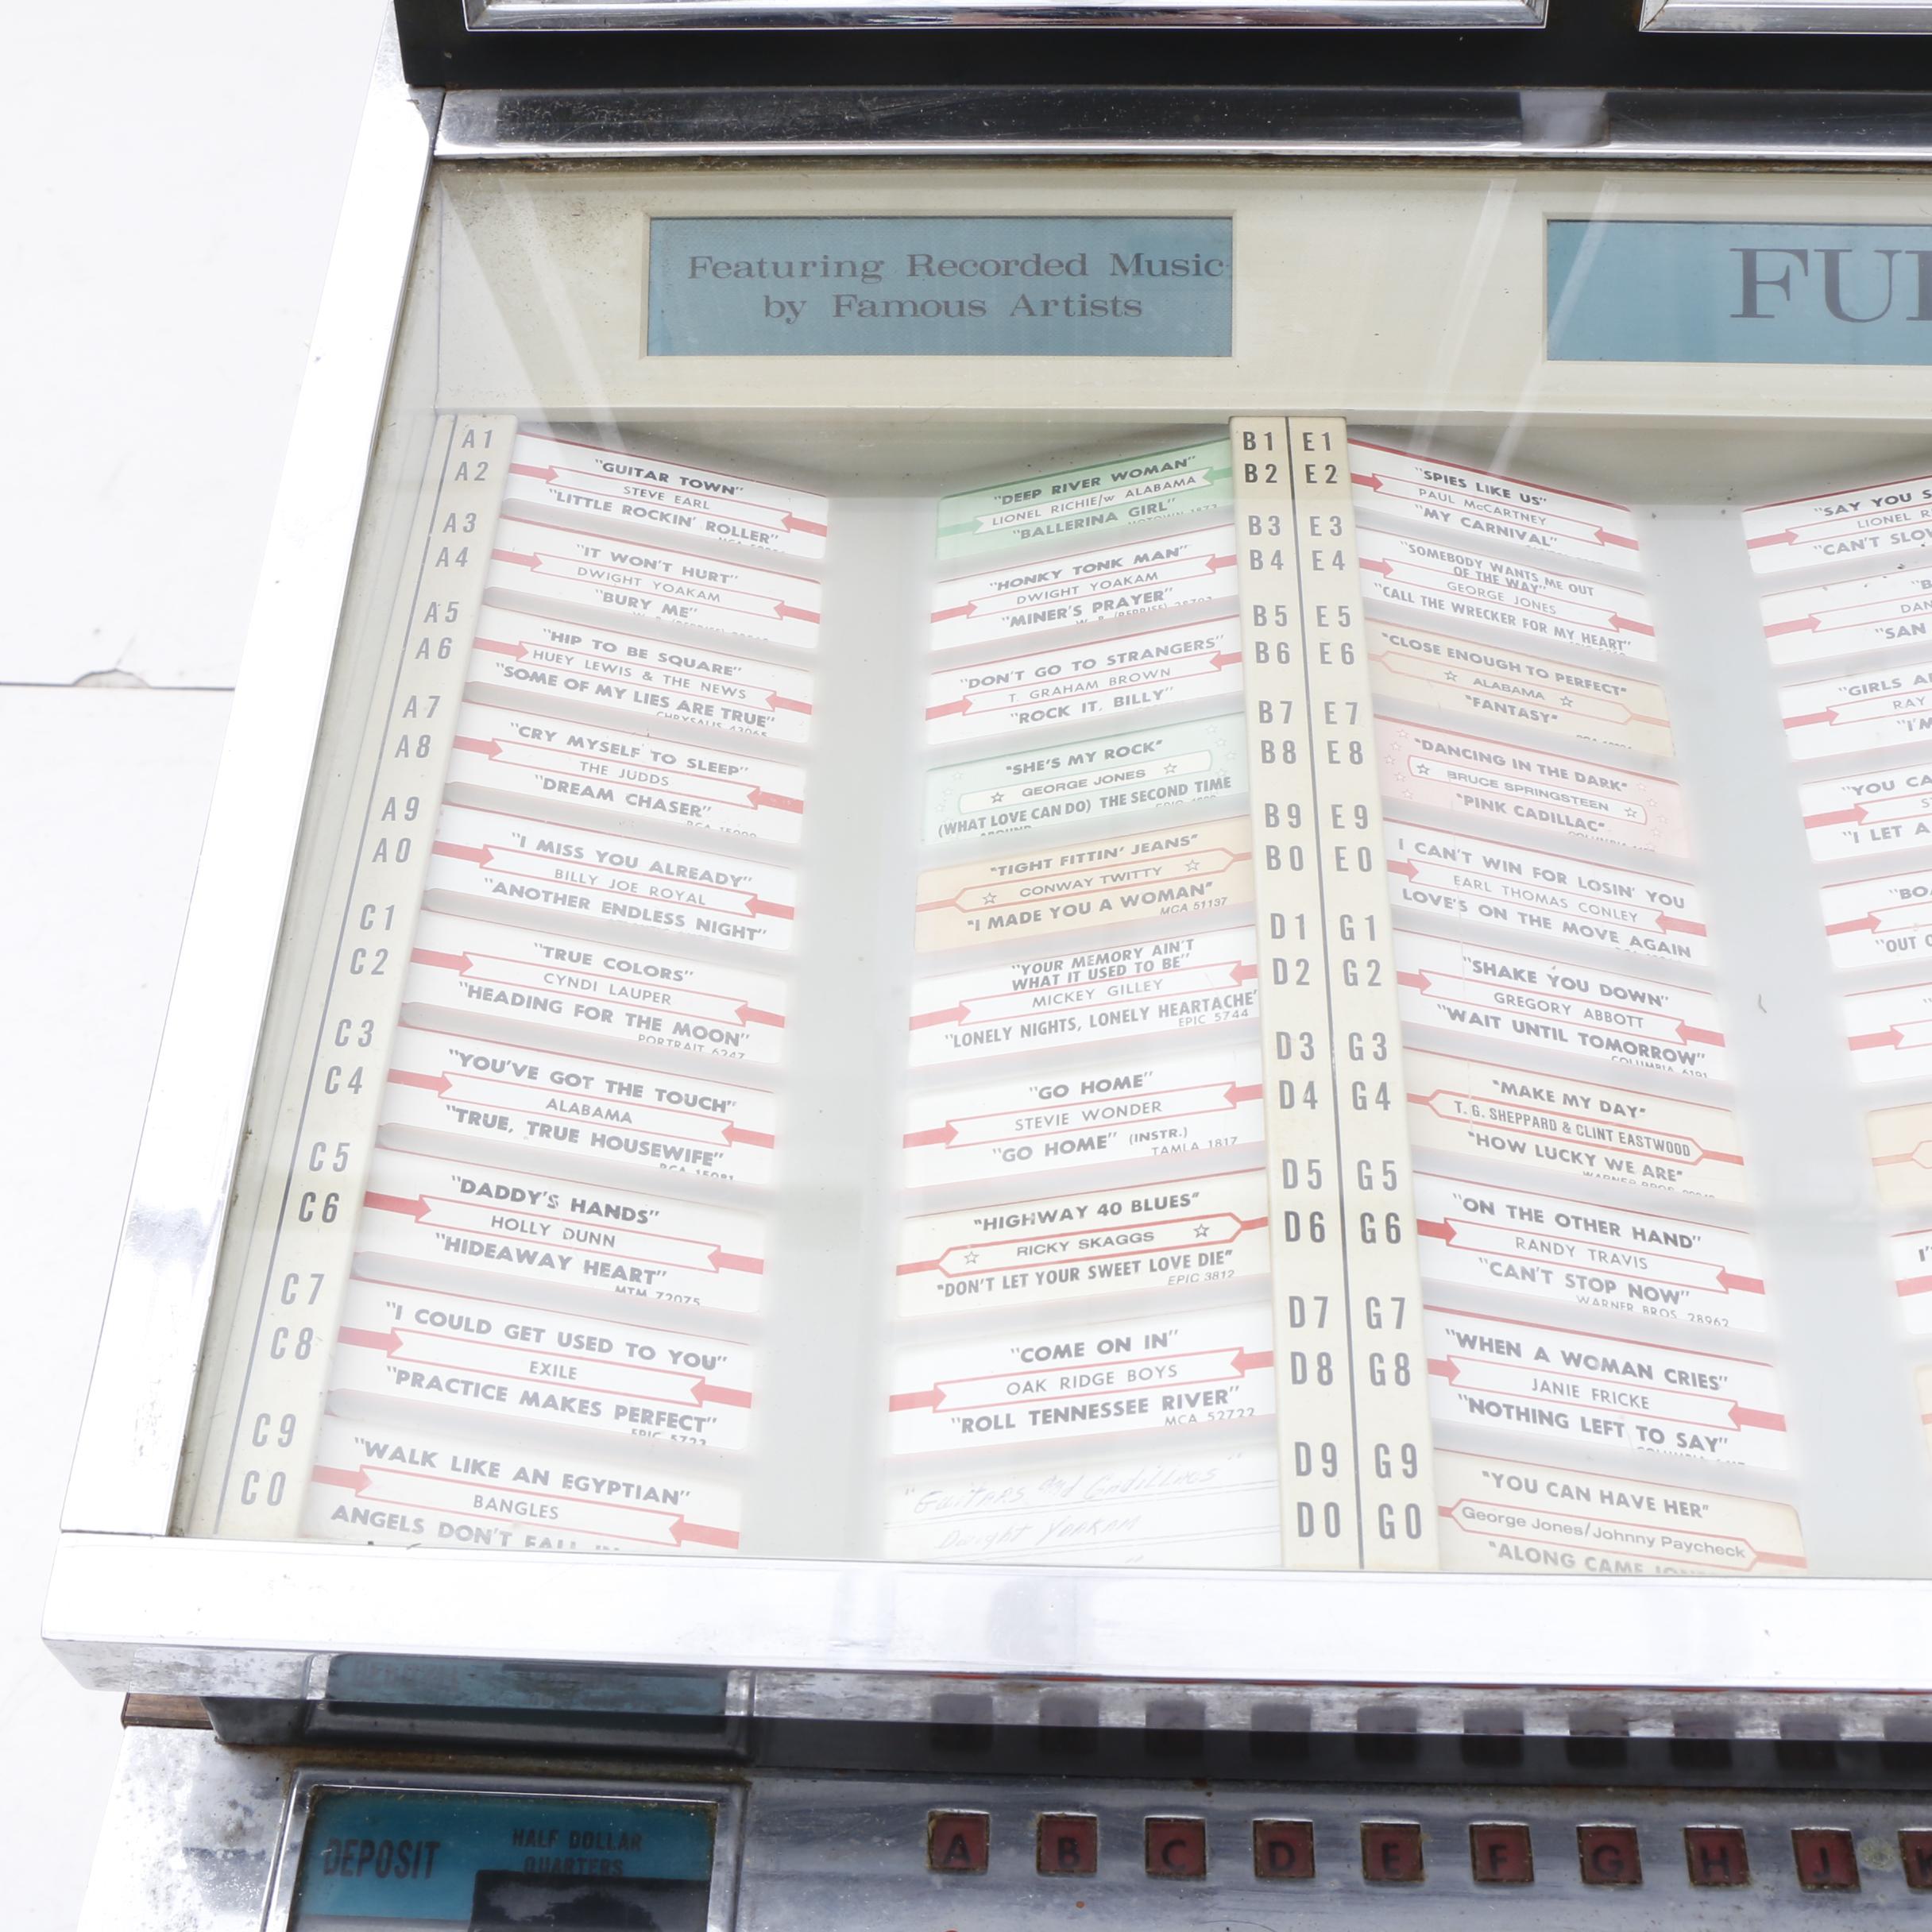 Featuring Recorded Music
by Famous Artists
FU
A1
A2
A3
A4
A5
A6
A7
A8
A9
A0
C1
C2
C3
C4
C5
C6
C7
C8
C9
C0
"GUITAR TOWN"
STEVE EARL
"LITTLE ROCKIN' ROLLER"
"IT WON'T HURT"
DWIGHT YOAKAM
"BURY ME"
"HIP TO BE SQUARE"
HUEY LEWIS & THE NEWS
"SOME OF MY LIES ARE TRUE"
CHRYSALIS 43065
"CRY MYSELF TO SLEEP"
THE JUDDS
"DREAM CHASER"
"I MISS YOU ALREADY"
BILLY JOE ROYAL
"ANOTHER ENDLESS NIGHT"
"TRUE COLORS"
CYNDI LAUPER
"HEADING FOR THE MOON"
PORTRAIT 6247
"YOU'VE GOT THE TOUCH"
ALABAMA
"TRUE, TRUE HOUSEWIFE"
RCA 15081
"DADDY'S HANDS"
HOLLY DUNN
"HIDEAWAY HEART"
MTM 72075
"I COULD GET USED TO YOU"
EXILE
"PRACTICE MAKES PERFECT"
EPIC 5723
"WALK LIKE AN EGYPTIAN"
BANGLES
ANGELS DON'T FALL IN
"DEEP RIVER WOMAN"
LIONEL RICHIE/w ALABAMA
"BALLERINA GIRL"
"HONKY TONK MAN"
DWIGHT YOAKAM
"MINER'S PRAYER"
"DON'T GO TO STRANGERS"
T. GRAHAM BROWN
"ROCK IT, BILLY"
"SHE'S MY ROCK"
GEORGE JONES
(WHAT LOVE CAN DO) THE SECOND TIME
AROUND
"TIGHT FITTIN' JEANS"
CONWAY TWITTY
"I MADE YOU A WOMAN"
MCA 51137
"YOUR MEMORY AIN'T
WHAT IT USED TO BE"
MICKEY GILLEY
"LONELY NIGHTS, LONELY HEARTACHE'
EPIC 5744
"GO HOME"
STEVIE WONDER
"GO HOME" (INSTR.)
TAMLA 1817
"HIGHWAY 40 BLUES"
RICKY SKAGGS
"DON'T LET YOUR SWEET LOVE DIE"
EPIC 3812
"COME ON IN"
OAK RIDGE BOYS
"ROLL TENNESSEE RIVER"
MCA 52722
"Guitars and Cadillacs"
Dwight Yoakam
B1 E1
B2 E2
B3 E3
B4 E4
B5 E5
B6 E6
B7 E7
B8 E8
B9 E9
B0 E0
D1 G1
D2 G2
D3 G3
D4 G4
D5 G5
D6 G6
D7 G7
D8 G8
D9 G9
D0 G0
"SPIES LIKE US"
PAUL McCARTNEY
"MY CARNIVAL"
"SOMEBODY WANTS ME OUT
OF THE WAY"
GEORGE JONES
"CALL THE WRECKER FOR MY HEART"
"CLOSE ENOUGH TO PERFECT"
ALABAMA
"FANTASY"
"DANCING IN THE DARK"
BRUCE SPRINGSTEEN
"PINK CADILLAC"
I CAN'T WIN FOR LOSIN' YOU
EARL THOMAS CONLEY
LOVE'S ON THE MOVE AGAIN
"SHAKE YOU DOWN"
GREGORY ABBOTT
"WAIT UNTIL TOMORROW"
COLUMBIA 6191
"MAKE MY DAY"
T. G. SHEPPARD & CLINT EASTWOOD
"HOW LUCKY WE ARE"
"ON THE OTHER HAND"
RANDY TRAVIS
"CAN'T STOP NOW"
WARNER BROS. 28962
"WHEN A WOMAN CRIES"
JANIE FRICKE
"NOTHING LEFT TO SAY"
"YOU CAN HAVE HER"
George Jones/Johnny Paycheck
"ALONG CAME JONES
"SAY YOU S
LIONEL R
"CAN'T SLOW
DAN
"SAN
"GIRLS A
RAY
"I'M
"YOU CA
"I LET A
"BO
"OUT O
DEPOSIT
HALF DOLLAR
QUARTERS
A B C D E F G H J K